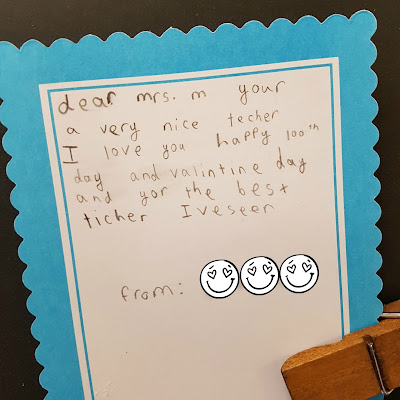 dear mrs. m your
a very nice techer
I love you happy 100th
day and valintine day
and yor the best
ticher Iveseen
from: